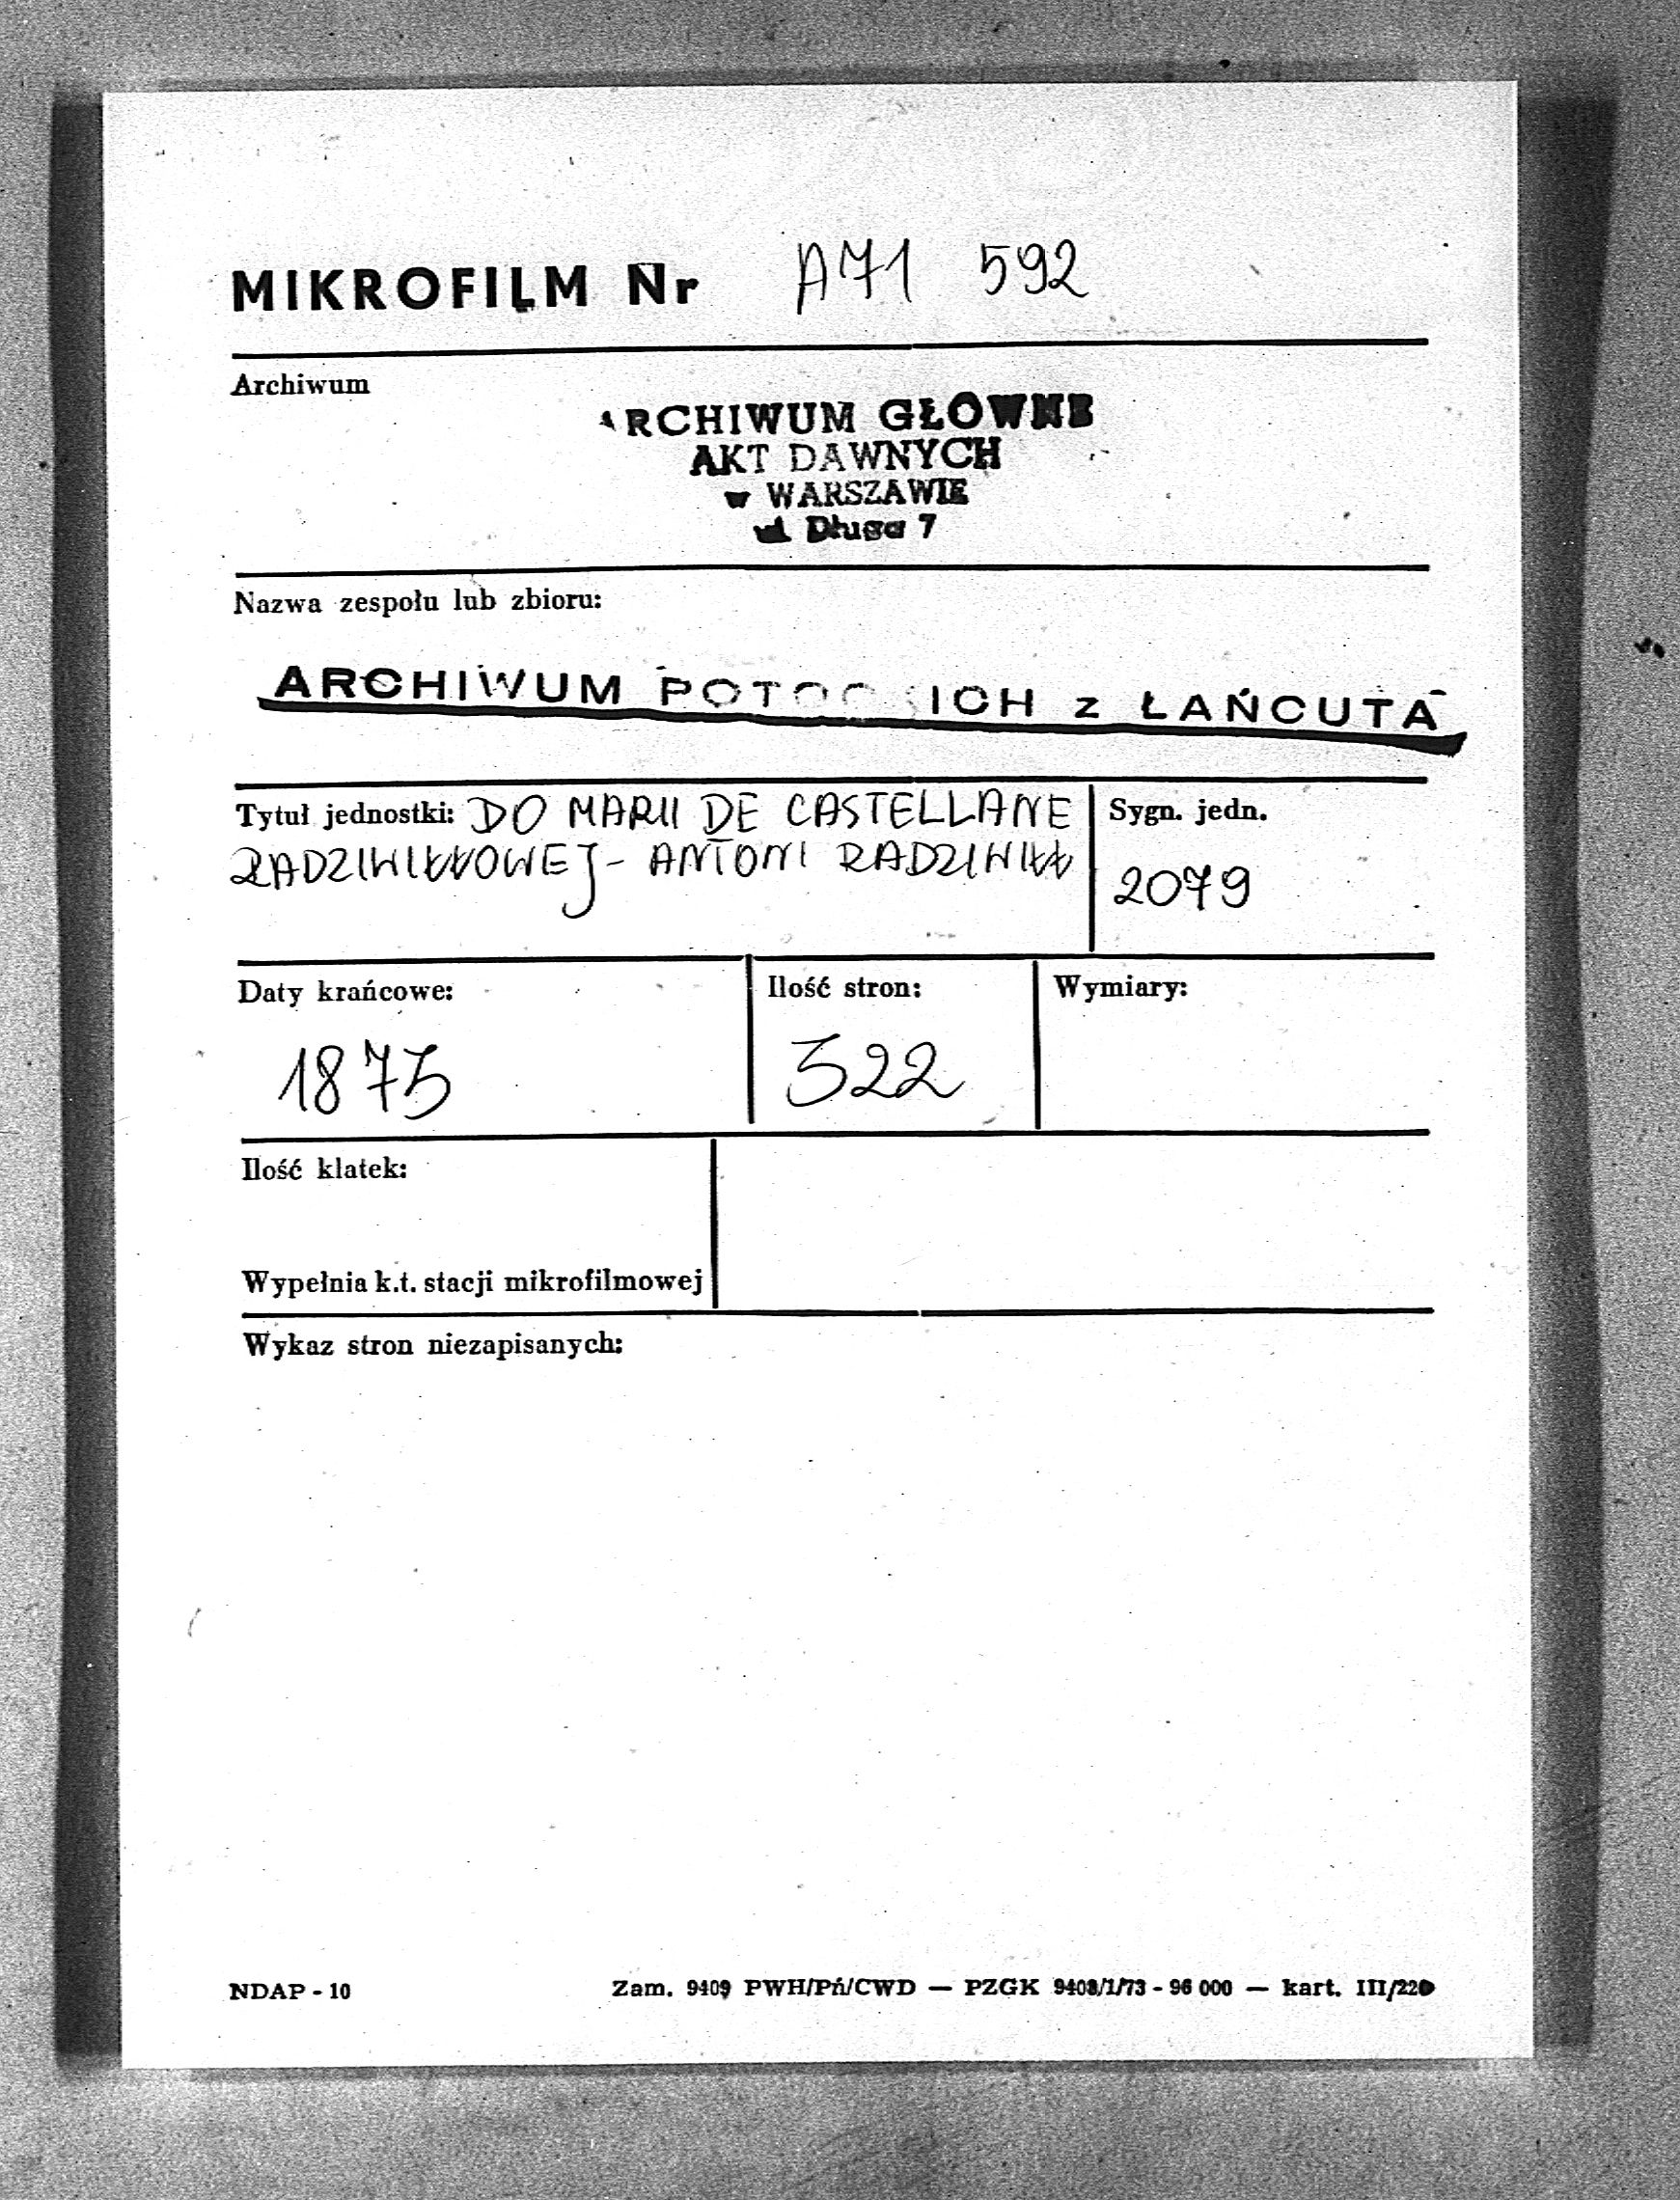 MIKROFILM Nr A71 592
Archiwum
ARCHIWUM GŁOWNE
AKT DAWNYCH
w WARSZAWIE
ul Długa 7
Nazwa zespołu lub zbioru:
ARCHIWUM POTOCKICH z ŁAŃCUTA
Tytuł jednostki: DO MARII DE CASTELLANE
RADZIWIŁŁOWEJ - ANTONI RADZIWIŁŁ
Sygn. jedn.
2079
Daty krańcowe:
1875
Ilość stron:
322
Wymiary:
Ilość klatek:
Wypełnia k.t. stacji mikrofilmowej
Wykaz stron niezapisanych:
NDAP - 10
Zam. 9409 PWH/Pń/CWD — PZGK 9408/1/73 - 96 000 — kart. III/220